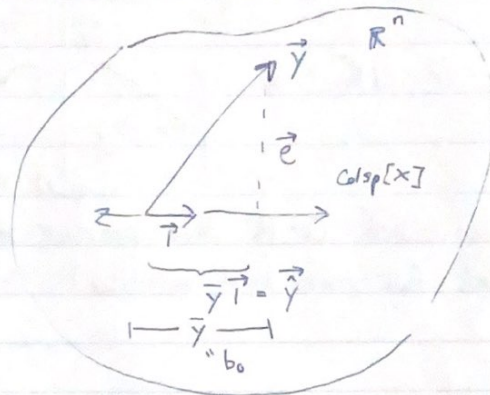 ℝⁿ
y⃗
e⃗
colsp[X]
1⃗
ȳ 1⃗ = ŷ⃗
ȳ
" b₀